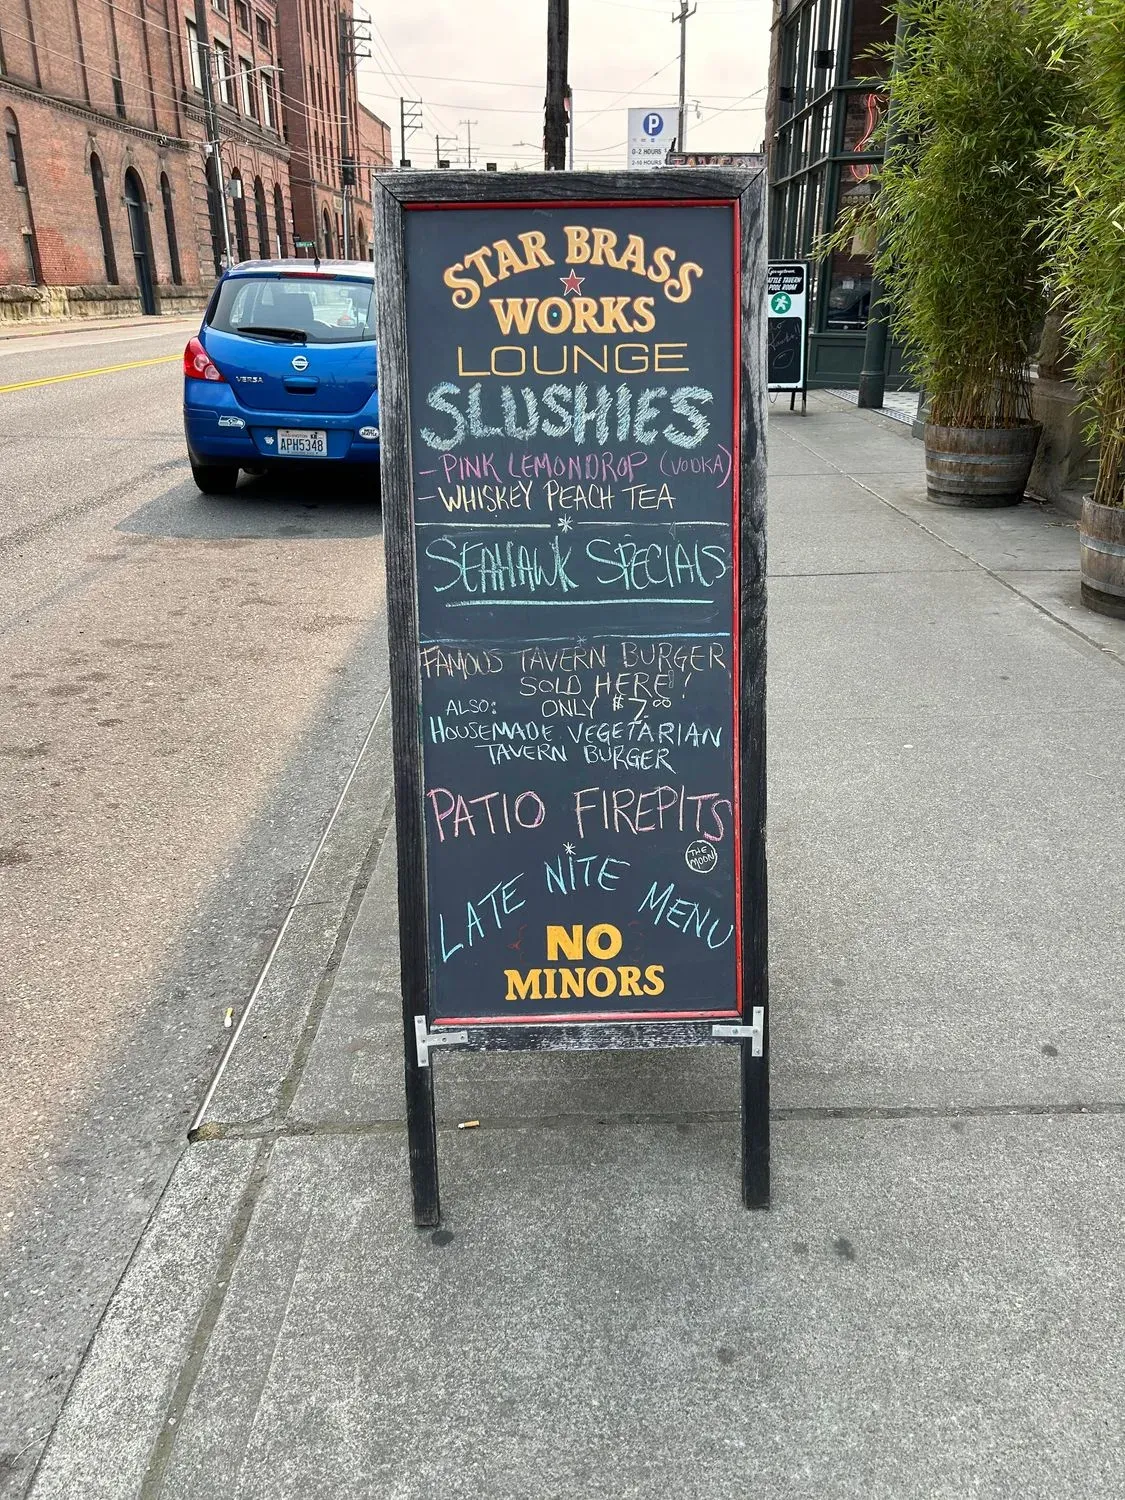 P
0-2 HOURS
2-10 HOURS
TAVERN
STAR BRASS
WORKS
LOUNGE
SLUSHIES
- PINK LEMONDROP (VODKA)
- WHISKEY PEACH TEA
SEAHAWK SPECIALS
FAMOUS TAVERN BURGER
SOLD HERE!
ALSO: ONLY $7.00
HOUSEMADE VEGETARIAN
TAVERN BURGER
PATIO FIREPITS
THE
MOON
LATE NITE MENU
NO
MINORS
VERSA
APH5348
Georgetown
POOL ROOM